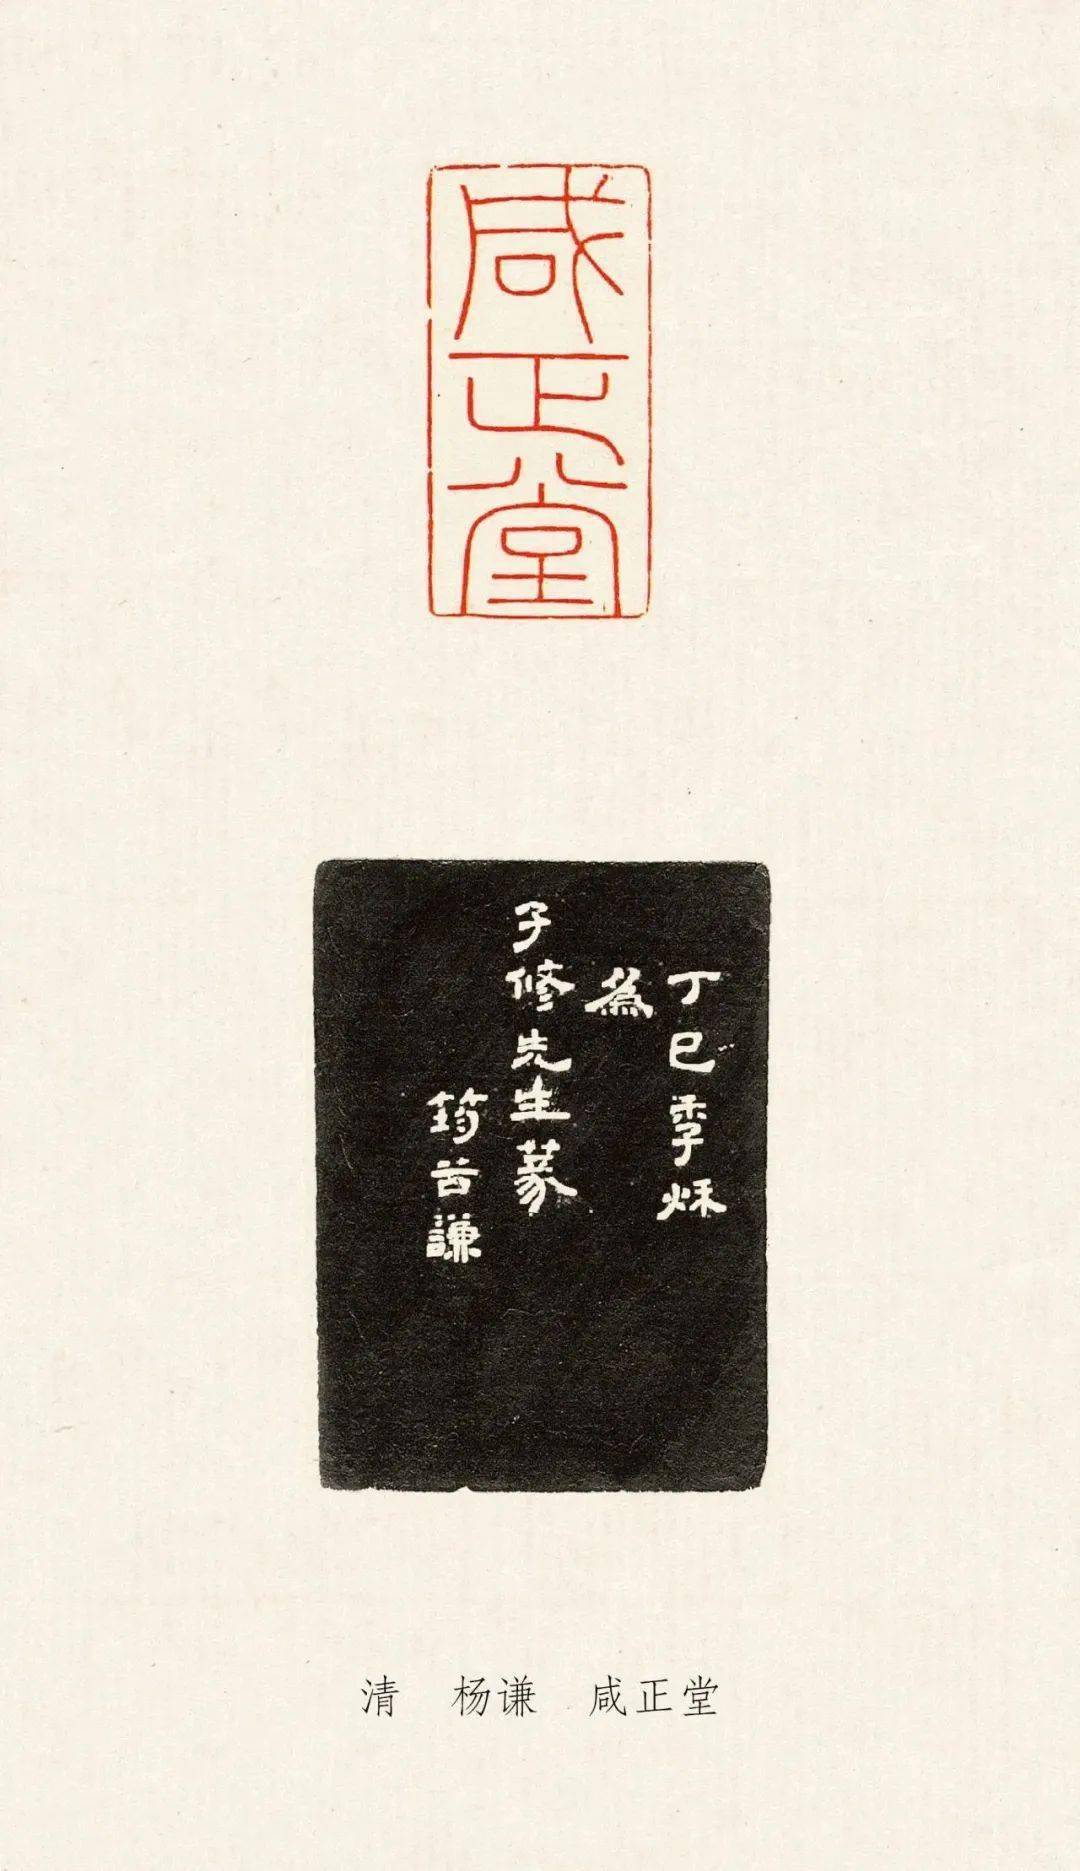 咸正堂
丁巳季秌
爲
子修先生篆
筠谷謙
清 杨谦 咸正堂